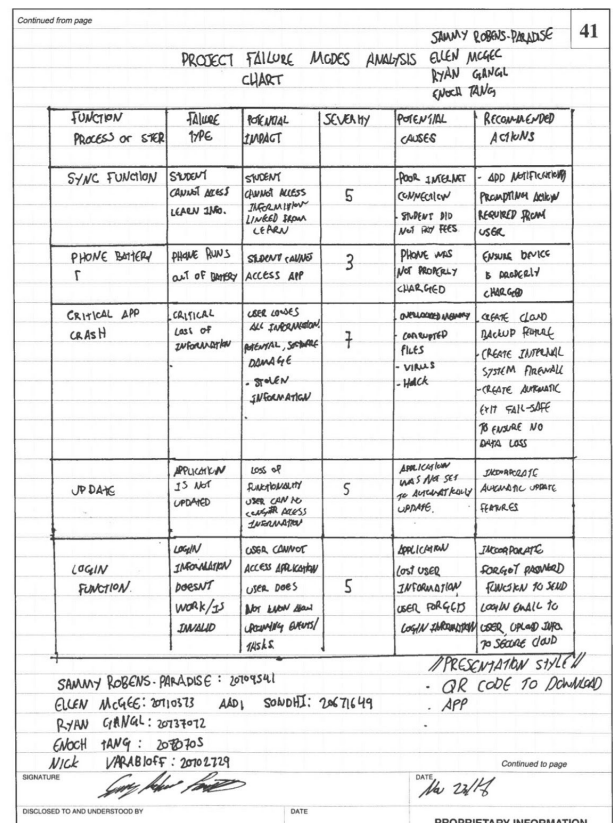 Continued from page
41
SAMMY ROBENS-PARADISE
PROJECT FAILURE MODES ANALYSIS
CHART
ELLEN MCGEE
RYAN GANGL
ENOCH TANG
FUNCTION
PROCESS or STEP
FAILURE
TYPE
POTENTIAL
IMPACT
SEVERITY
POTENTIAL
CAUSES
RECOMMENDED
ACTIONS
SYNC FUNCTION
STUDENT
CANNOT ACCESS
LEARN INFO.
STUDENT
CANNOT ACCESS
INFORMATION
LINKED FROM
LEARN
5
-POOR INTERNET
CONNECTION
- STUDENT DID
NOT PAY FEES
- ADD NOTIFICATIONS
PROMPTING ACTION
REQUIRED FROM
USER
PHONE BATTERY
PHONE RUNS
OUT OF BATTERY
STUDENT CANNOT
ACCESS APP
3
PHONE WAS
NOT PROPERLY
CHARGED
ENSURE DEVICE
IS PROPERLY
CHARGED
CRITICAL APP
CRASH
-CRITICAL
LOSS OF
INFORMATION
USER LOSES
ALL INFORMATION
POTENTIAL SOFTWARE
DAMAGE
- STOLEN
INFORMATION
7
- OVERLOADED MEMORY
- CORRUPTED
FILES
- VIRUS
- HACK
-CREATE CLOUD
BACKUP FEATURE
-CREATE INTERNAL
SYSTEM FIREWALL
-CREATE AUTOMATIC
EXIT FAIL-SAFE
TO ENSURE NO
DATA LOSS
UPDATE
APPLICATION
IS NOT
UPDATED
LOSS OF
FUNCTIONALITY
USER CAN NO
LONGER ACCESS
INFORMATION
5
APPLICATION
WAS NOT SET
TO AUTOMATICALLY
UPDATE.
INCORPORATE
AUTOMATIC UPDATE
FEATURES
LOGIN
FUNCTION.
LOGIN
INFORMATION
DOESNT
WORK/IS
INVALID
USER CANNOT
ACCESS APPLICATION
USER DOES
NOT KNOW
UPCOMING EVENTS/
TASKS.
5
APPLICATION
LOST USER
INFORMATION,
USER FORGETS
LOGIN INFORMATION
INCORPORATE
FORGOT PASSWORD
FUNCTION TO SEND
LOGIN EMAIL TO
USER, UPLOAD INFO.
TO SECURE CLOUD
//PRESENTATION STYLE//
- QR CODE TO DOWNLOAD
- APP
SAMMY ROBENS-PARADISE: 20709541
ELLEN McGEE: 20710373 AADI SONDHI: 20671649
RYAN GANGL: 20737072
ENOCH TANG:
NICK VARABIOFF: 20702729
Continued to page
SIGNATURE
DATE
DISCLOSED TO AND UNDERSTOOD BY
DATE
PROPRIETARY INFORMATION